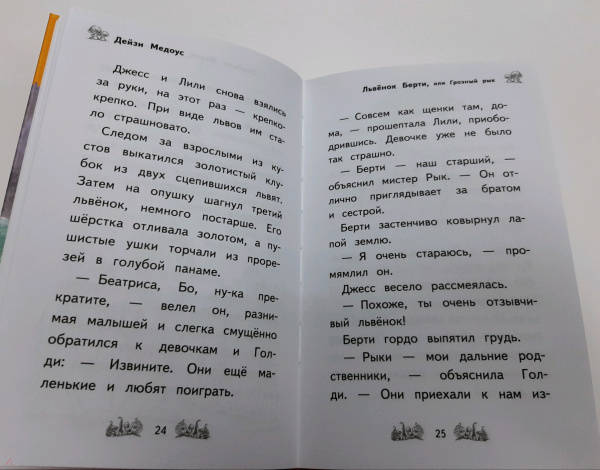 Дейзи Медоус
Джесс и Лили снова взялись
за руки, на этот раз — крепко-
крепко. При виде львов им ста-
ло страшновато.
Следом за взрослыми из ку-
стов выкатился золотистый клу-
бок из двух сцепившихся львят.
Затем на опушку шагнул третий
львёнок, немного постарше. Его
шёрстка отливала золотом, а пу-
шистые ушки торчали из проре-
зей в голубой панаме.
— Беатриса, Бо, ну-ка пре-
кратите, — велел он, разни-
мая малышей и слегка смущённо
обратился к девочкам и Гол-
ди: — Извините. Они ещё ма-
ленькие и любят поиграть.
24
Львёнок Берти, или Грозный рык
— Совсем как щенки там, до-
ма, — прошептала Лили, приобо-
дрившись. Девочке уже не было
так страшно.
— Берти — наш старший, —
объяснил мистер Рык. — Он от-
лично приглядывает за братом
и сестрой.
Берти застенчиво ковырнул ла-
пой землю.
— Я очень стараюсь, — про-
мямлил он.
Джесс весело рассмеялась.
— Похоже, ты очень отзывчи-
вый львёнок!
Берти гордо выпятил грудь.
— Рыки — мои дальние род-
ственники, — объяснила Гол-
ди. — Они приехали к нам из-
25